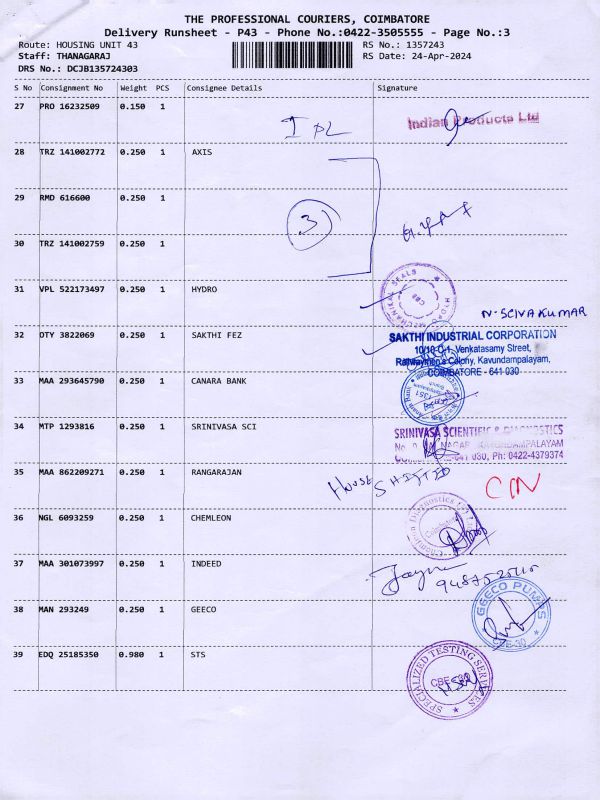 THE PROFESSIONAL COURIERS, COIMBATORE
Delivery Runsheet - P43 - Phone No.:0422-3505555 - Page No.:3
Route: HOUSING UNIT 43
RS No.: 1357243
Staff: THANAGARAJ
RS Date: 24-Apr-2024
DRS No.: DCJB135724303
S No Consignment No Weight PCS Consignee Details Signature
27 PRO 16232509 0.150 1
IPL
Indian Products Ltd
28 TRZ 141002772 0.250 1 AXIS
29 RMD 616600 0.250 1
3
30 TRZ 141002759 0.250 1
31 VPL 522173497 0.250 1 HYDRO
HYDRO MECHANICAL SEALS
CBE
N-SCIVAKUMAR
32 DTY 3822069 0.250 1 SAKTHI FEZ
SAKTHI INDUSTRIAL CORPORATION
10/10-C-1, Venkatasamy Street,
Railwaymen's Colony, Kavundampalayam,
COIMBATORE - 641 030
33 MAA 293645790 0.250 1 CANARA BANK
34 MTP 1293816 0.250 1 SRINIVASA SCI
SRINIVASA SCIENTIFIC & DIAGNOSTICS
NAGAR, KAVUNDAMPALAYAM
641 030, Ph: 0422-4379374
35 MAA 862209271 0.250 1 RANGARAJAN
HOUSE SHIFTED
CN
36 NGL 6093259 0.250 1 CHEMLEON
37 MAA 301073997 0.250 1 INDEED
38 MAN 293249 0.250 1 GEECO
GEECO PUMPS
CBE-30
39 EDQ 25185350 0.980 1 STS
SPECIALIZED TESTING SERVICES
CBE-30